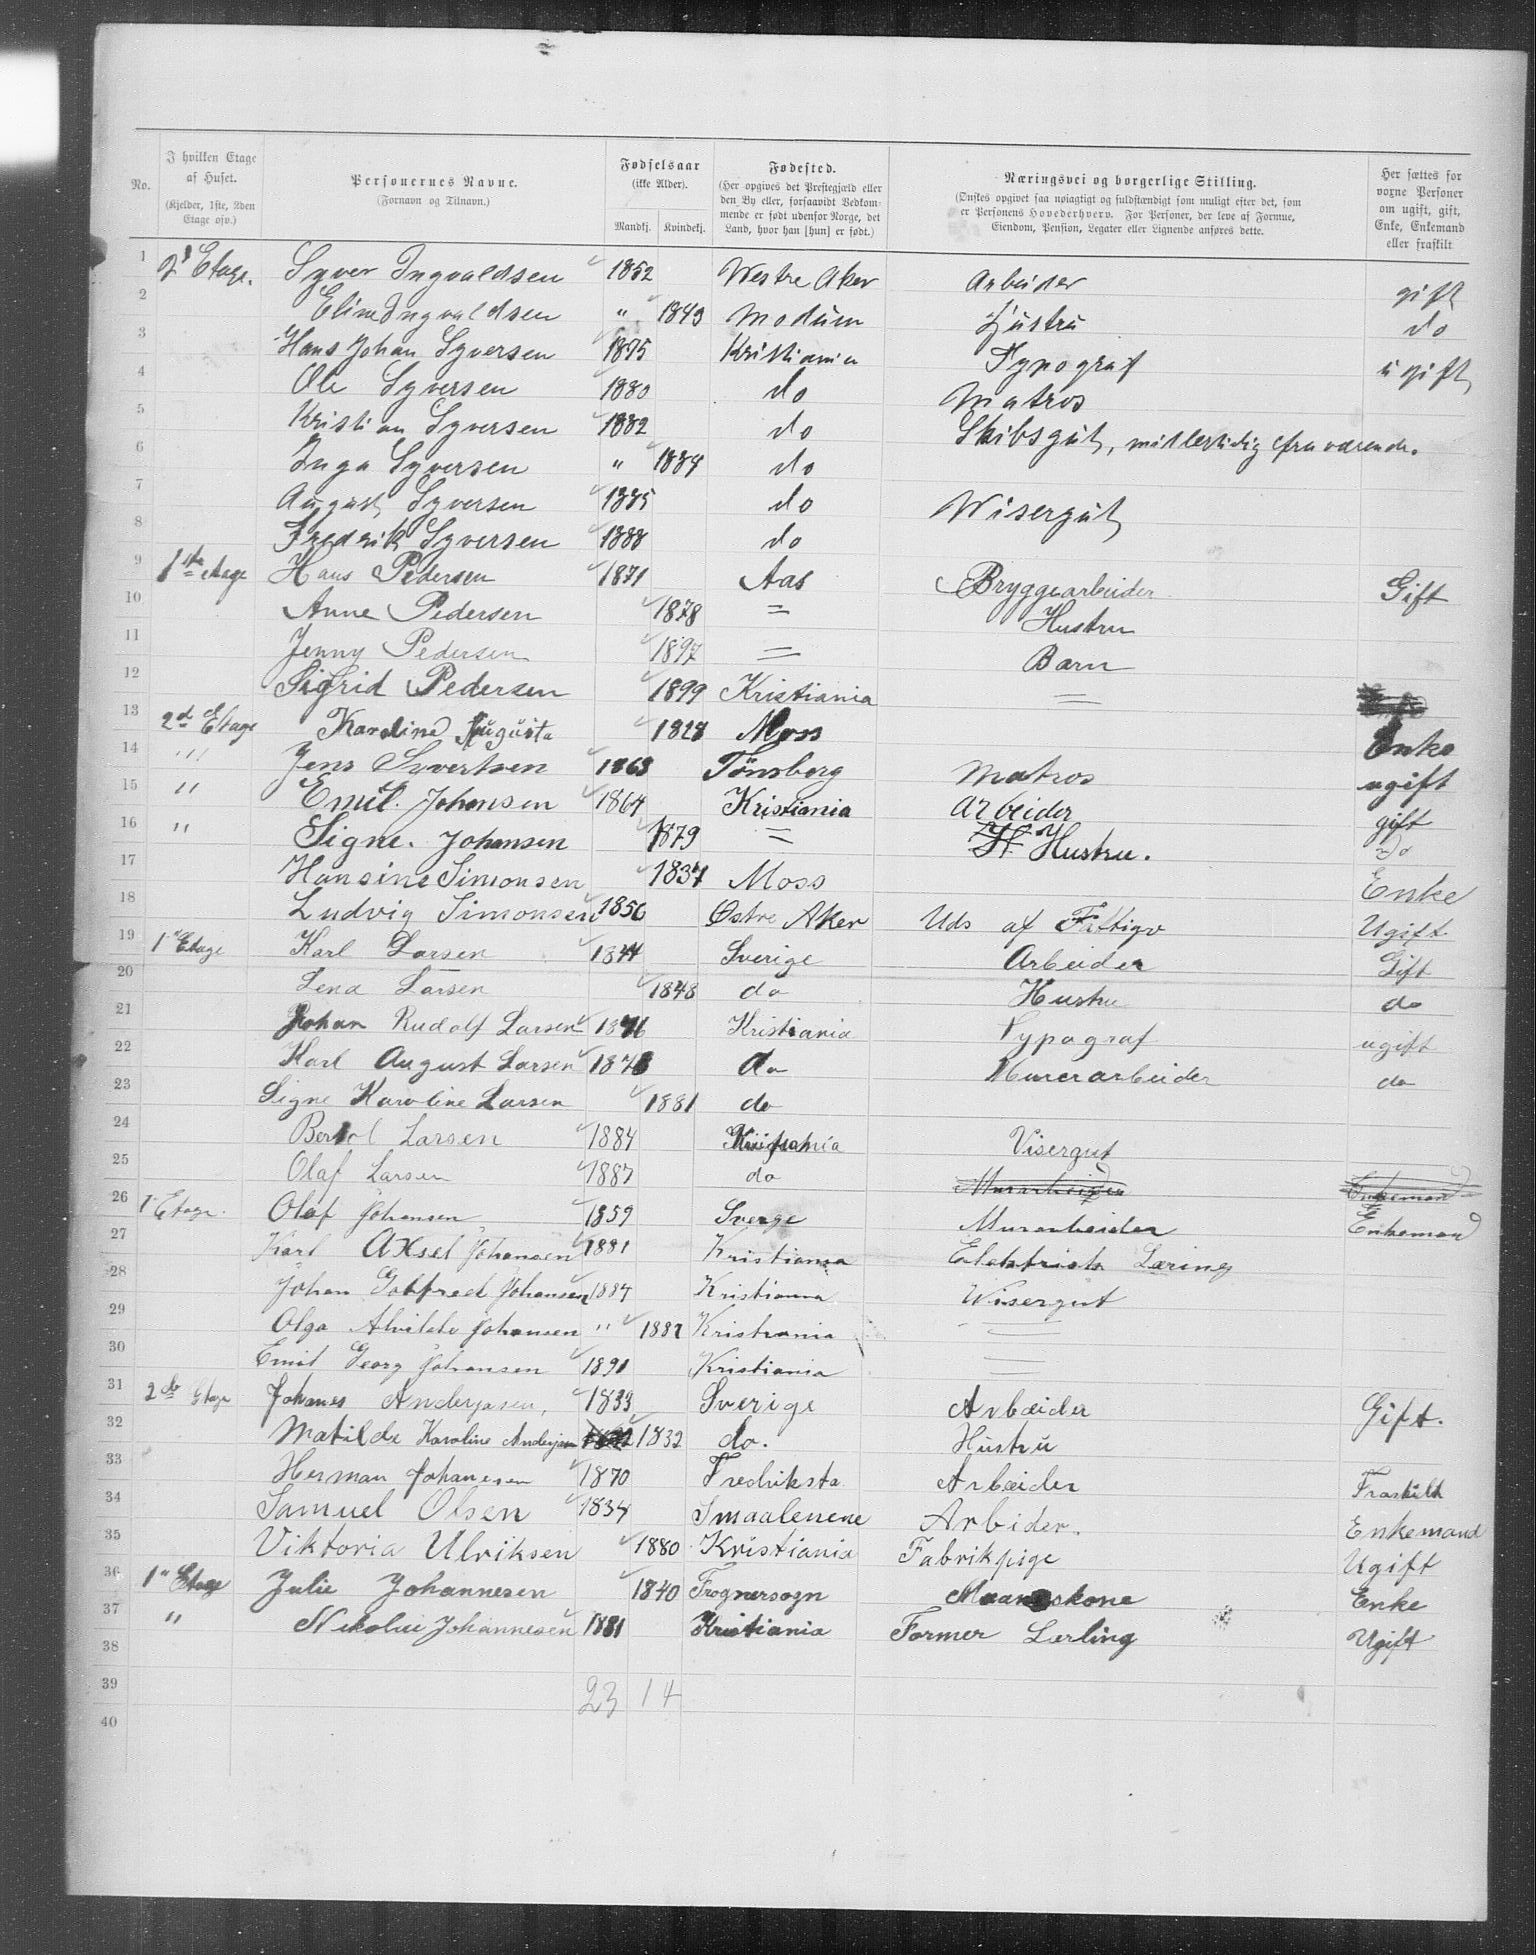 No.
I hvilken Etage af Huset.
(Kjelder, 1ste, 2den Etage osv.)
Personernes Navne.
(Fornavn og Tilnavn.)
Fødselsaar
(ikke Alder).
Mandkj. Kvindekj.
Fødested.
(Her opgives det Prestegjæld eller den By eller, forsaavidt Vedkommende er født udenfor Norge, det Land, hvor han [hun] er født.)
Næringsvei og borgerlige Stilling.
(Ønskes opgivet saa nøiagtigt og fuldstændigt som muligt efter det, som er Personens Hovederhverv. For Personer, der leve af Formue, Eiendom, Pension, Legater eller Lignende anføres dette.
Her sættes for voxne Personer om ugift, gift, Enke, Enkemand eller fraskilt
1 Etage. Syver Ingvaldsen 1852 Westre Aker Arbeider gift
2 Eline Ingvaldsen " 1849 Modum Hustru do
3 Hans Johan Syversen 1875 Kristiania Typograf ugift
4 Ole Syversen 1880 do Matros
5 Kristian Syversen 1882 do Skibsgut, midlertidig fraværende.
6 Inga Syversen " 1884 do
7 August Syversen 1885 do Wisergut
8 Fredrik Syversen 1888 do
9 1ste etage Hans Pedersen 1871 Aas Bryggearbeider Gift
10 Anne Pedersen 1878 = Hustru
11 Jenny Pedersen 1897 = Barn
12 Sigfrid Pedersen 1899 Kristiania =
13 2d Etage Karoline Augusta 1828 Moss Enke
14 " Jens Syvertsen 1863 Tönsberg Matros ugift
15 " Emil. Johansen 1864 Kristiania Arbeider gift
16 " Signe. Johansen 1879 = H. Hustru. Do
17 Hansine Simonsen 1837 Moss Enke
18 Ludvig Simonsen 1856 Østre Aker Uds af Fattigv Ugift
19 1 Etage Karl Larsen 1844 Sverige Arbeider Gift
20 Lena Larsen 1848 do Hustru do
21 Johan Rudolf Larsen 1876 Kristiania Typograf ugift
22 Karl August Larsen 1878 do Murerarbeider do
23 Signe Karoline Larsen 1881 do
24 Larsen 1884 Kristiania Visergut
25 Olaf Larsen 1887 do Murarbeider Enkemand
26 1 Etage. Olaf Johansen 1859 Sverge Murarbeider Enkemand
27 Karl Aksel Johansen 1881 Kristiania Elektrisk Læring
28 Johan Gotfred Johansen 1884 Kristiania Wisergut
29 Olga Alvilde Johansen " 1887 Kristiania =
30 Emil Georg Johansen 1891 Kristiania =
31 2de Etage Johanes Anderjasen, 1833 Sverige Arbeider Gift.
32 Matilde Karoline Anderjasen 1832 do. Hustru
33 Herman Johanesen 1870 Fredriksta Arbeider Fraskildt
34 Samuel Olsen 1834 Smaalenene Arbider. Enkemand
35 Viktoria Ulriksen 1880 Kristiania Fabrikpige Ugift
36 1 Etage Julie Johannesen 1840 Frognersogn Enke
37 " Nikolai Johannesen 1881 Kristiania Former Lærling Ugift
38
39 23 14
40